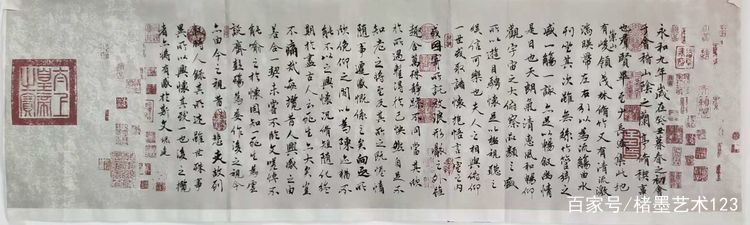 永和九年歲在癸丑暮春之初會
于會稽山陰之蘭亭脩稧事
也群賢畢至少長咸集此地
有崇山峻領茂林脩竹又有清流激
湍暎帶左右引以為流觴曲水
列坐其次雖無絲竹管弦之
盛一觴一詠亦足以暢敘幽情
是日也天朗氣清惠風和暢仰
觀宇宙之大俯察品類之盛
所以遊目騁懷足以極視聽之
娛信可樂也夫人之相與俯仰
一世或取諸懷抱悟言一室之內
或因寄所託放浪形骸之外雖
趣舍萬殊靜躁不同當其欣
於所遇蹔得於己怏然自足不
知老之將至及其所之既惓情
隨事遷感慨係之矣向之所
欣俛仰之間以為陳迹猶不
能不以之興懷況脩短隨化終
期於盡古人云死生亦大矣豈
不痛哉每攬昔人興感之由
若合一契未嘗不臨文嗟悼不
能喻之於懷固知一死生為虛
誕齊彭殤為妄作後之視今
亦由今之視昔悲夫故列
敘時人錄其所述雖世殊事
異所以興懷其致一也後之攬
者亦將有感於斯文
太上皇帝之寶
百家号/楮墨艺术123